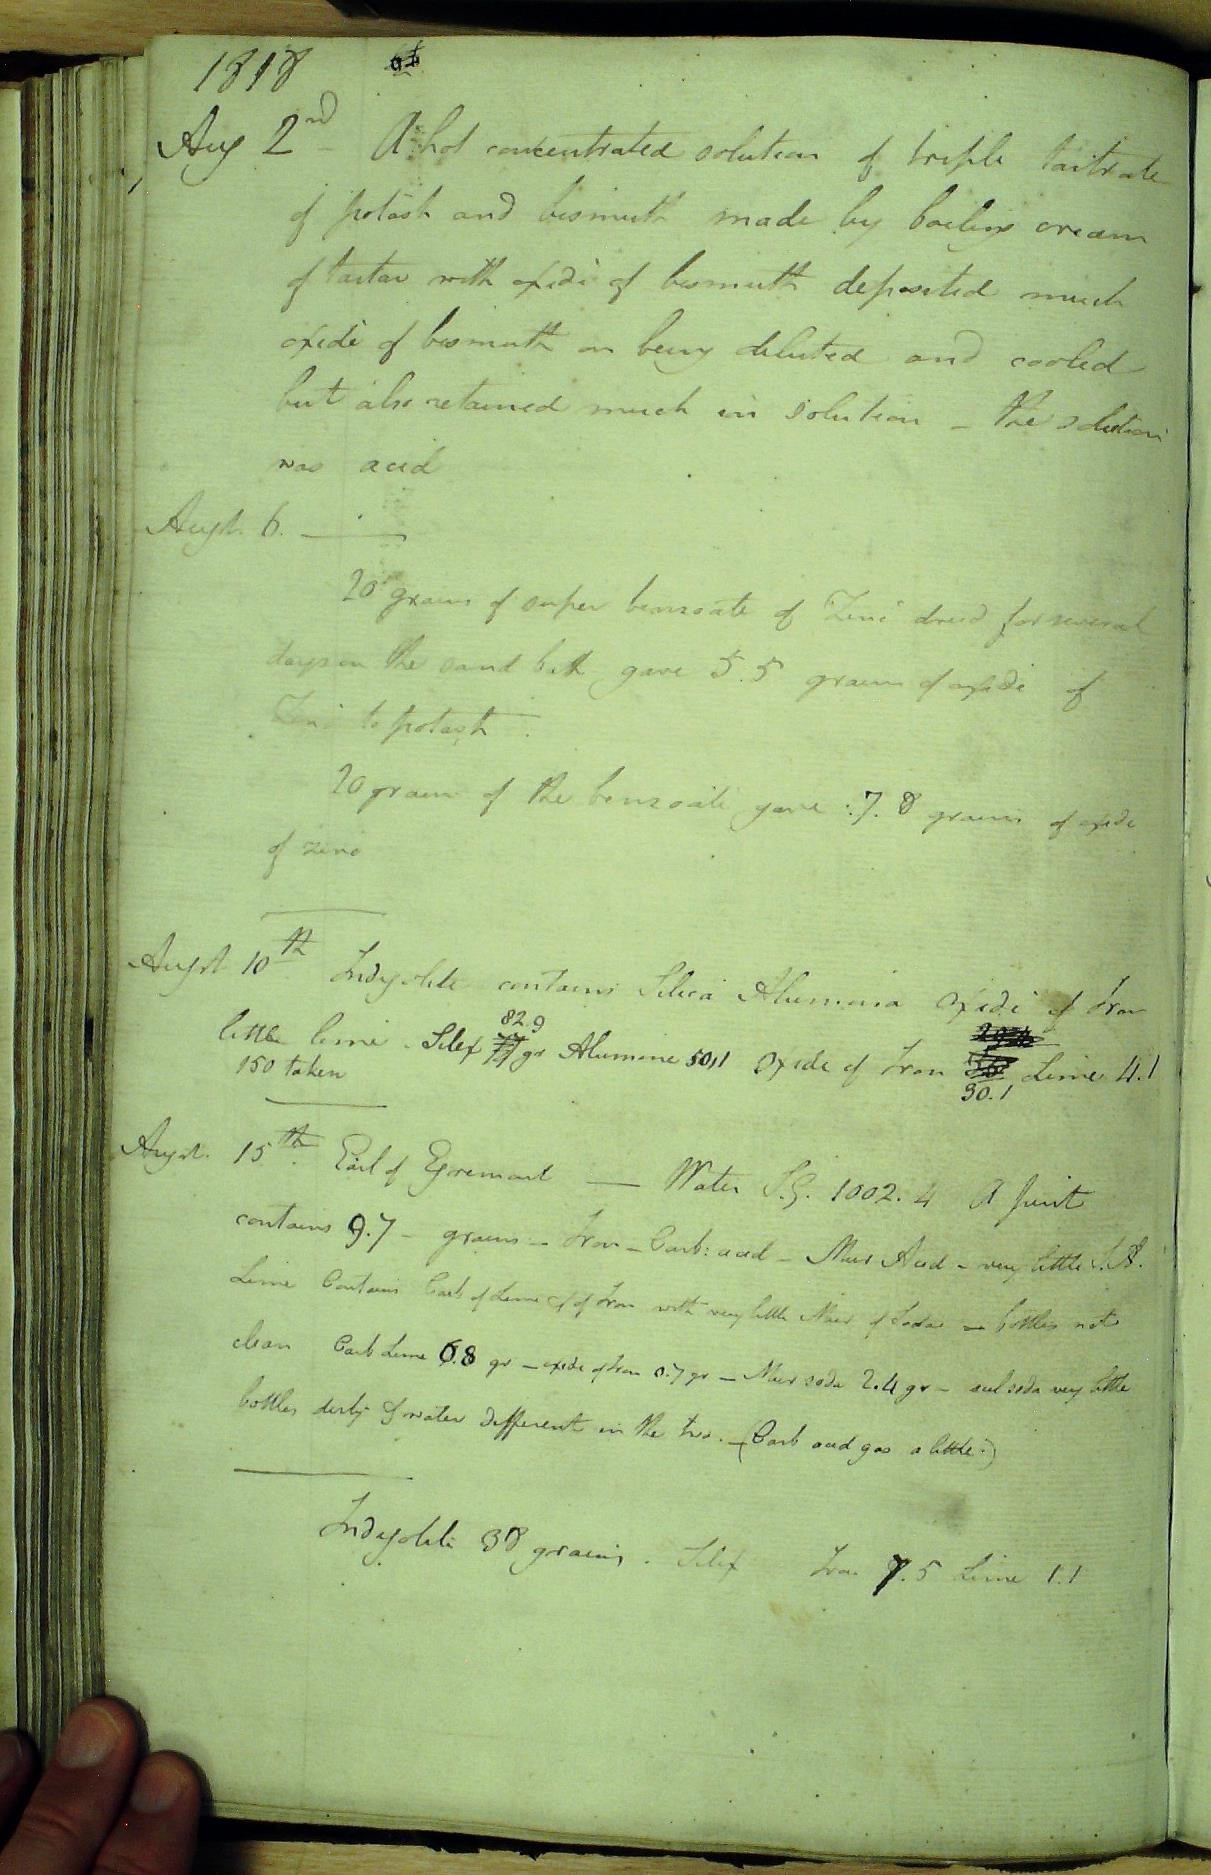 1818
Aug 2nd - A hot concentrated solution of triple tartrate
of potash and bismuth made by boiling cream
of tartar with oxide of bismuth deposited much
oxide of bismuth on being diluted and cooled
but also retained much in solution - the solution
was acid
Augt. 6. -
20 grains of super benzoate of Zinc dried for several
days on the sand bath gave 5.5 grains of oxide of
Zinc to potash.
20 grains of the benzoate gave 7.8 grains of oxide
of zinc
Augst 10th Indigolite contains Silica Alumina Oxide of Iron
little lime. Silex 82.9 gr Alumine 50,1 Oxide of Iron 30.1 Lime 4.1
150 taken
Augst. 15th. Earl of Egremont — Water S.G. 1002.4 A pint
contains 9.7 - grains - Iron - Carb: acid - Mur Acid - very little S.A.
Lime Contains Carb of Lime & of Iron with very little Mur of Soda - bottles not
clean Carb Lime 6.8 gr - oxide of Iron 0.7 gr - Mur soda 2.4 gr - sul soda very little
bottles dirty & water different in the two. - (Carb acid gas a little.)
Indigolite 38 grains. Silex Iron 7.5 Lime 1.1